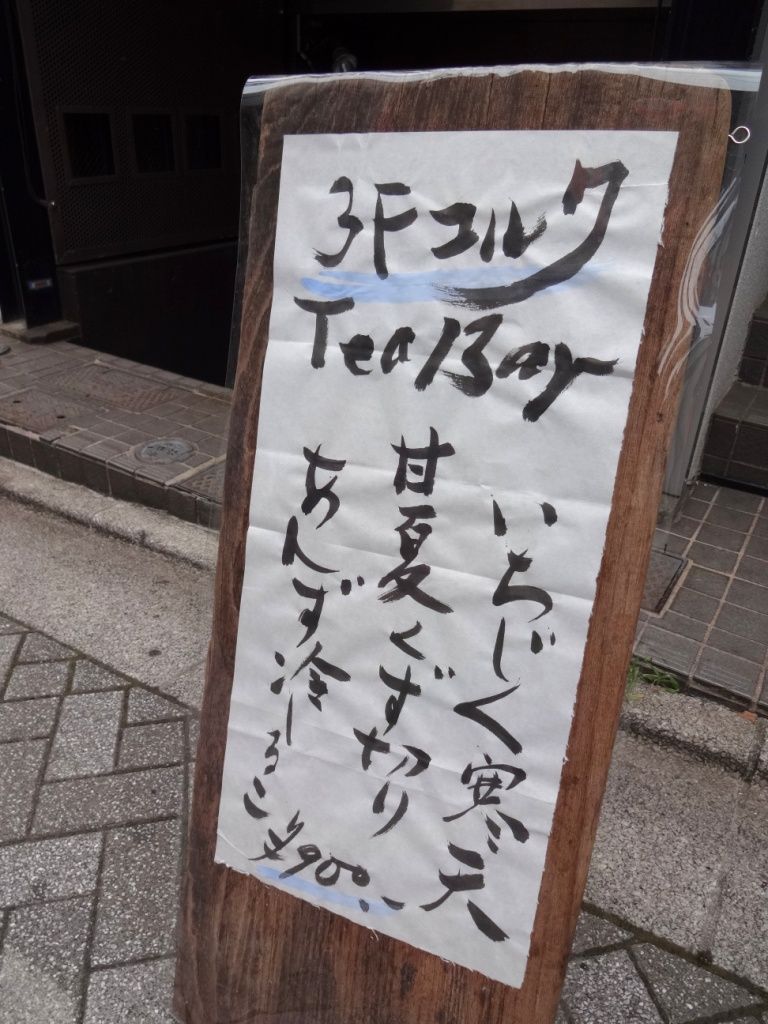 3Fコルク
Tea Bar
いちじく寒天
甘夏くず切り
あんず冷しるこ
各900.-